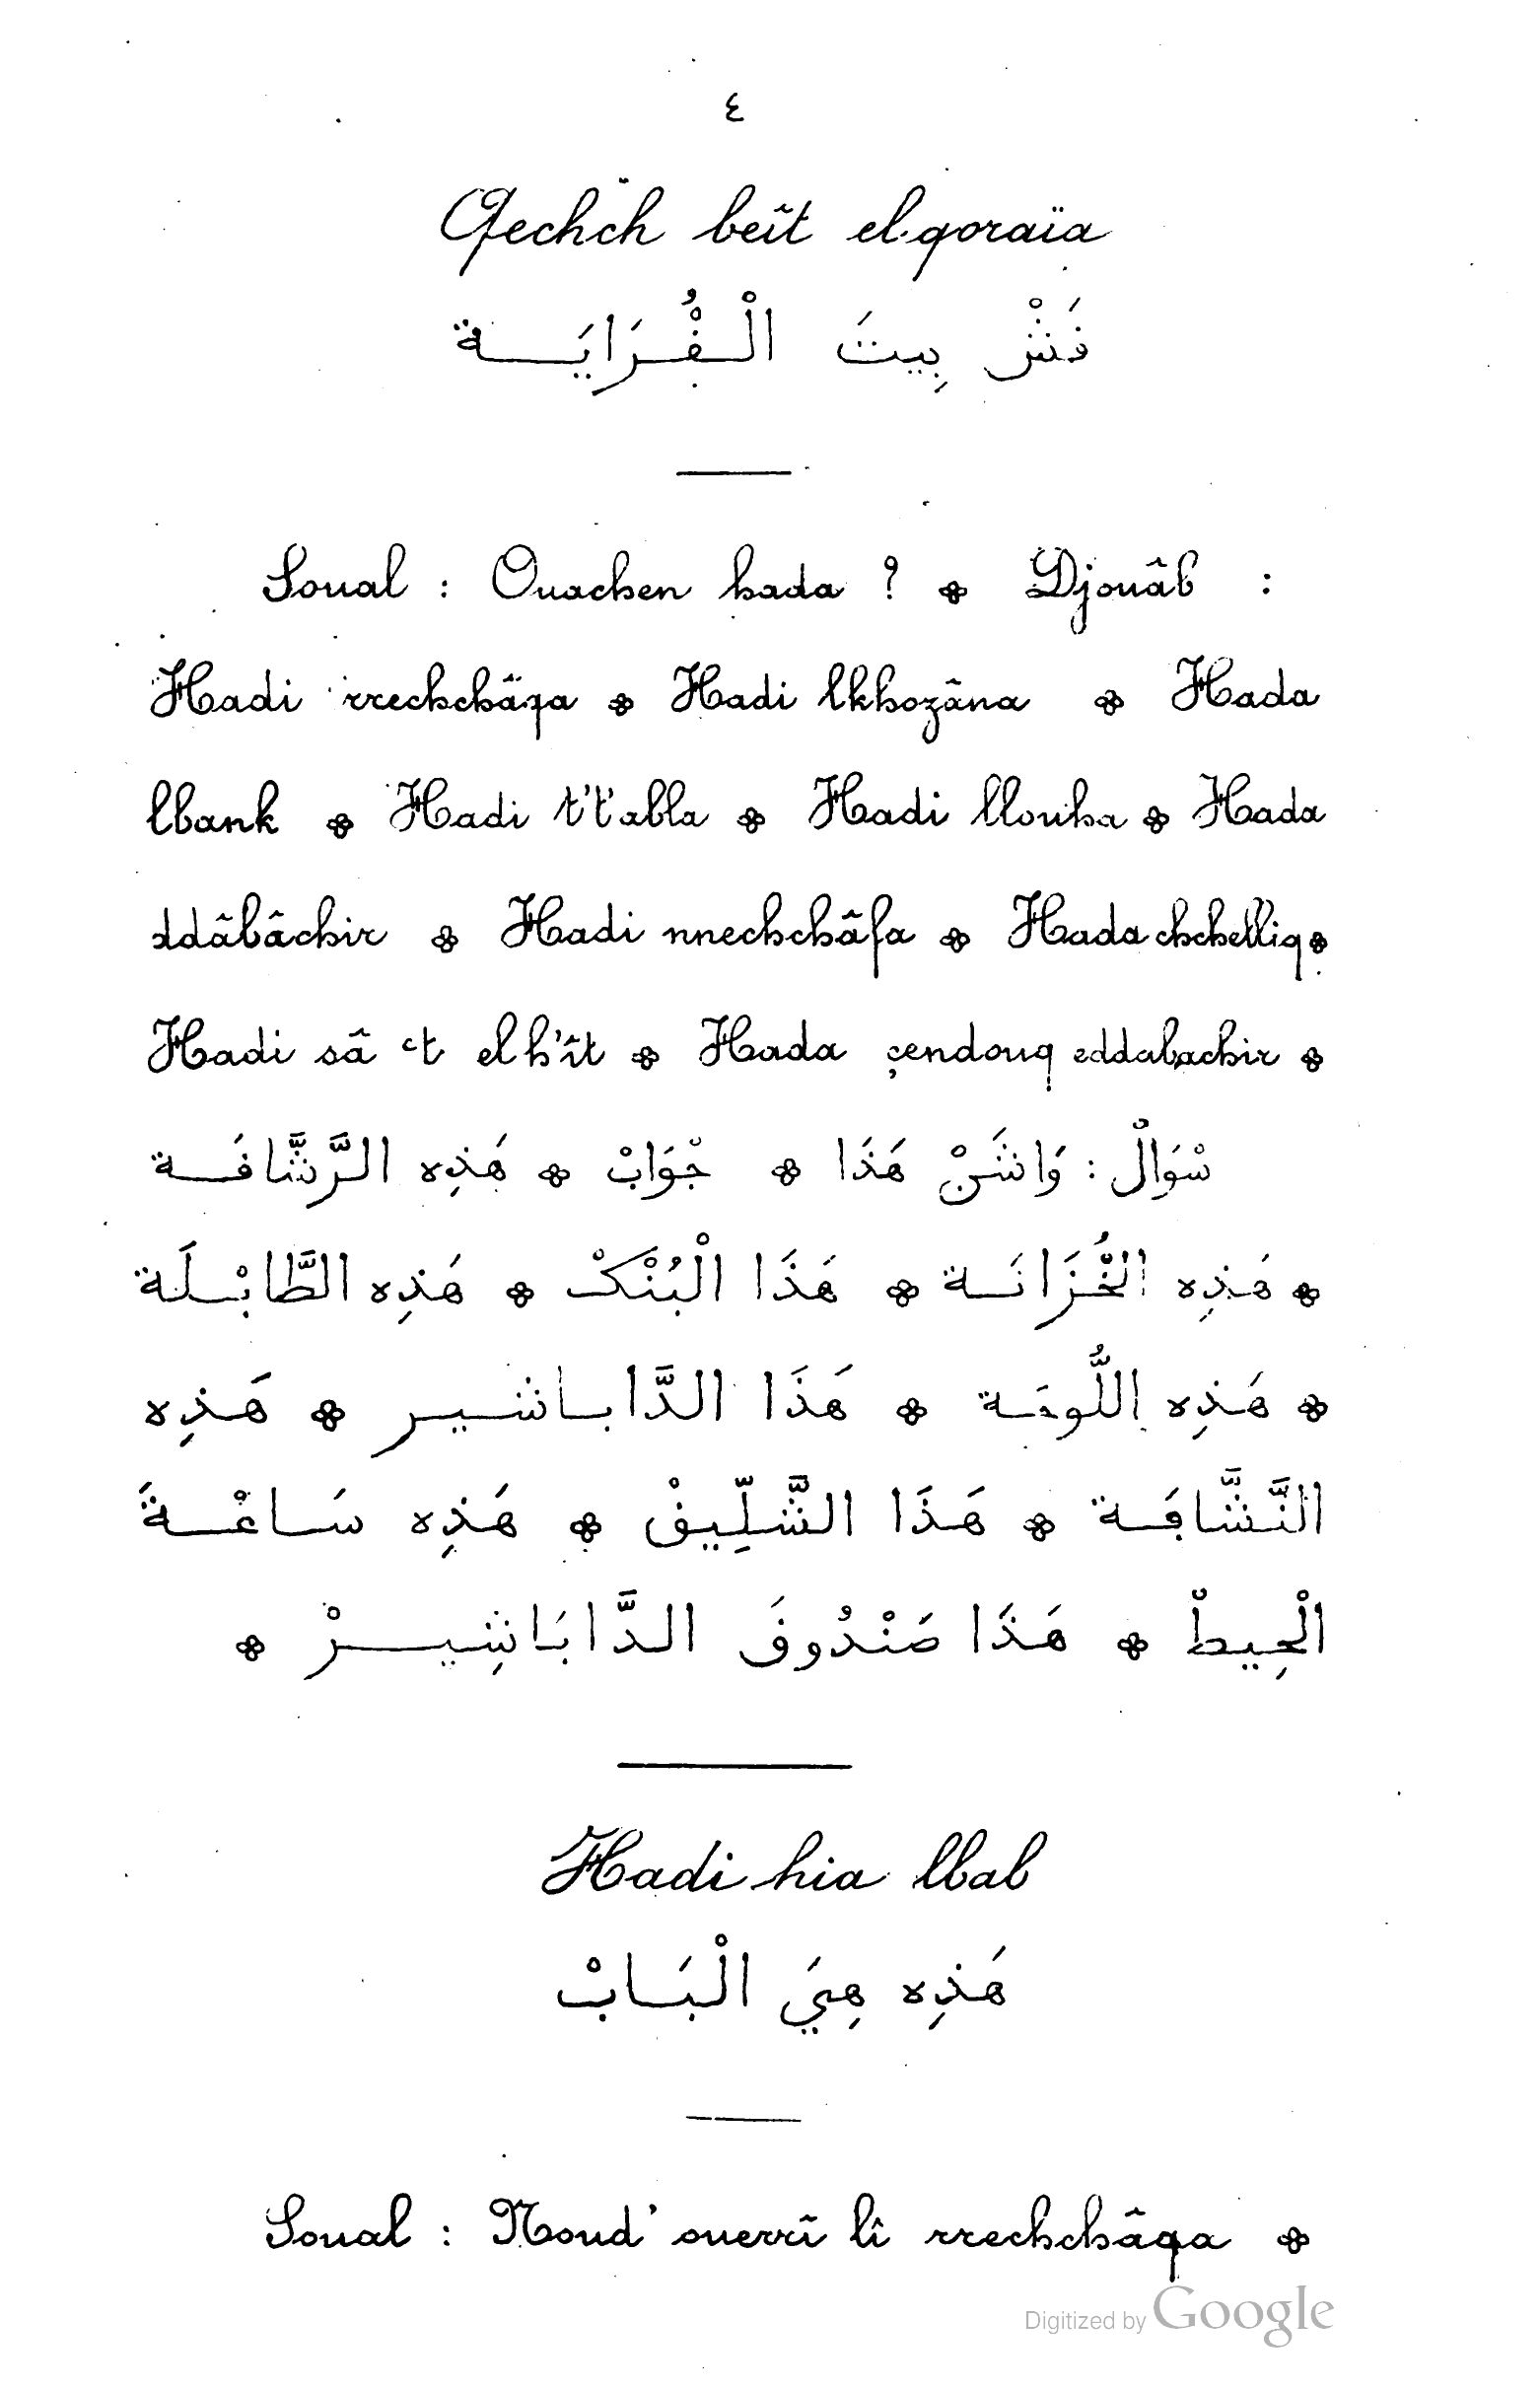 ٤
Qechch beît el qoraïa
فَشْ بِيتَ الْڧُرَايَة
Soual : Ouachen hada ? ✤ Djouâb :
Hadi rrechchâqa ✤ Hadi lkhozâna ✤ Hada
lbank ✤ Hadi t't'abla ✤ Hadi llouha ✤ Hada
ddâbâchir ✤ Hadi nnechchâfa ✤ Hada chchelliq ✤
Hadi sâ ʿt elh'ît ✤ Hada çendouq eddabachir ✤
سْوَالْ : وَاشَنْ هَذَا ✤ جْوَابْ ✤ هَذِه الرَّشَّافَة
✤ هَذِه الْخُزَانَة ✤ هَذَا الْبَُنْكْ ✤ هَذِه الطَّابْلَة
✤ هَذِه اللُّوحَة ✤ هَذَا الدَّاباشير ✤ هَذِه
النَّشَّاڢَة ✤ هَذَا الشَّلِّيفْ ✤ هَذِه سَاعْةَ
الْحِيطْ ✤ هَذَا صَنْدُوفَ الدَّابَاشِيرْ ✤
Hadi hia lbab
هَذِه هِيَ الْبَابْ
Soual : Noud' ouerrî lî rrechchâqa ✤
Digitized by Google